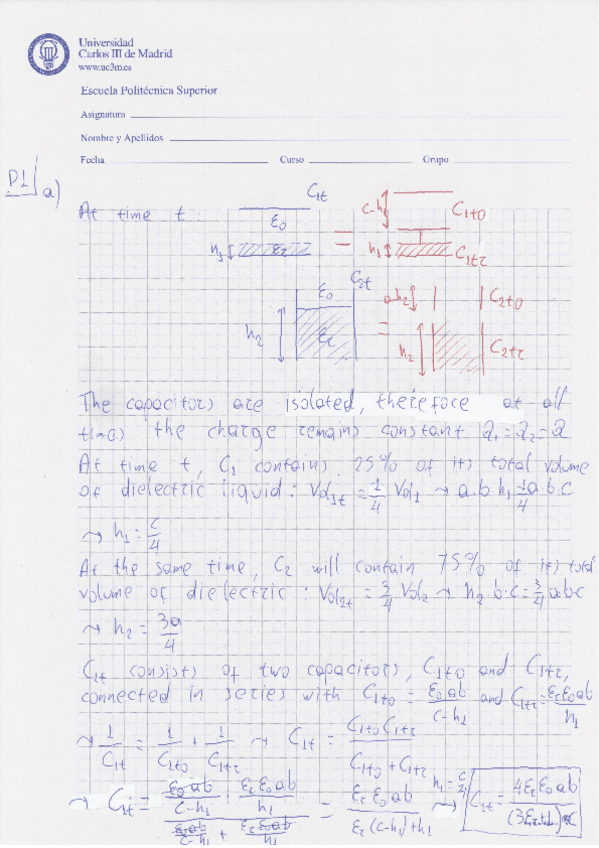 Universidad
Carlos III de Madrid
www.uc3m.es
Escuela Politécnica Superior
Asignatura
Nombre y Apellidos
Fecha Curso Grupo
P1 a)
At time t:
C1t
ε0
h1 εr
=
c-h1
C1t0
h1 C1tr
C2t
ε0
h2 εr
=
a-h2 C2t0
h2 C2tr
The capacitors are isolated, therefore at all
times the charge remains constant Q1=Q2=Q
At time t, C1 contains 25% of its total volume
of dielectric liquid: Vol1t = 1/4 Vol1 → a·b·h1 = 1/4 a·b·c
→ h1 = c/4
At the same time, C2 will contain 75% of its total
volume of dielectric: Vol2t = 3/4 Vol2 → h2·b·c = 3/4 abc
→ h2 = 3a/4
C1t consists of two capacitors, C1t0 and C1tr,
connected in series with C1t0 = ε0ab/(c-h1) and C1tr = εrε0ab/h1
→ 1/C1t = 1/C1t0 + 1/C1tr → C1t = C1t0 C1tr/(C1t0 + C1tr)
→ C1t = (ε0ab/(c-h1) · εrε0ab/h1)/(ε0ab/(c-h1) + εrε0ab/h1) = εrε0ab/(εr(c-h1)+h1) h1=c/4 → C1t = 4εrε0ab/((3εr+1)c)